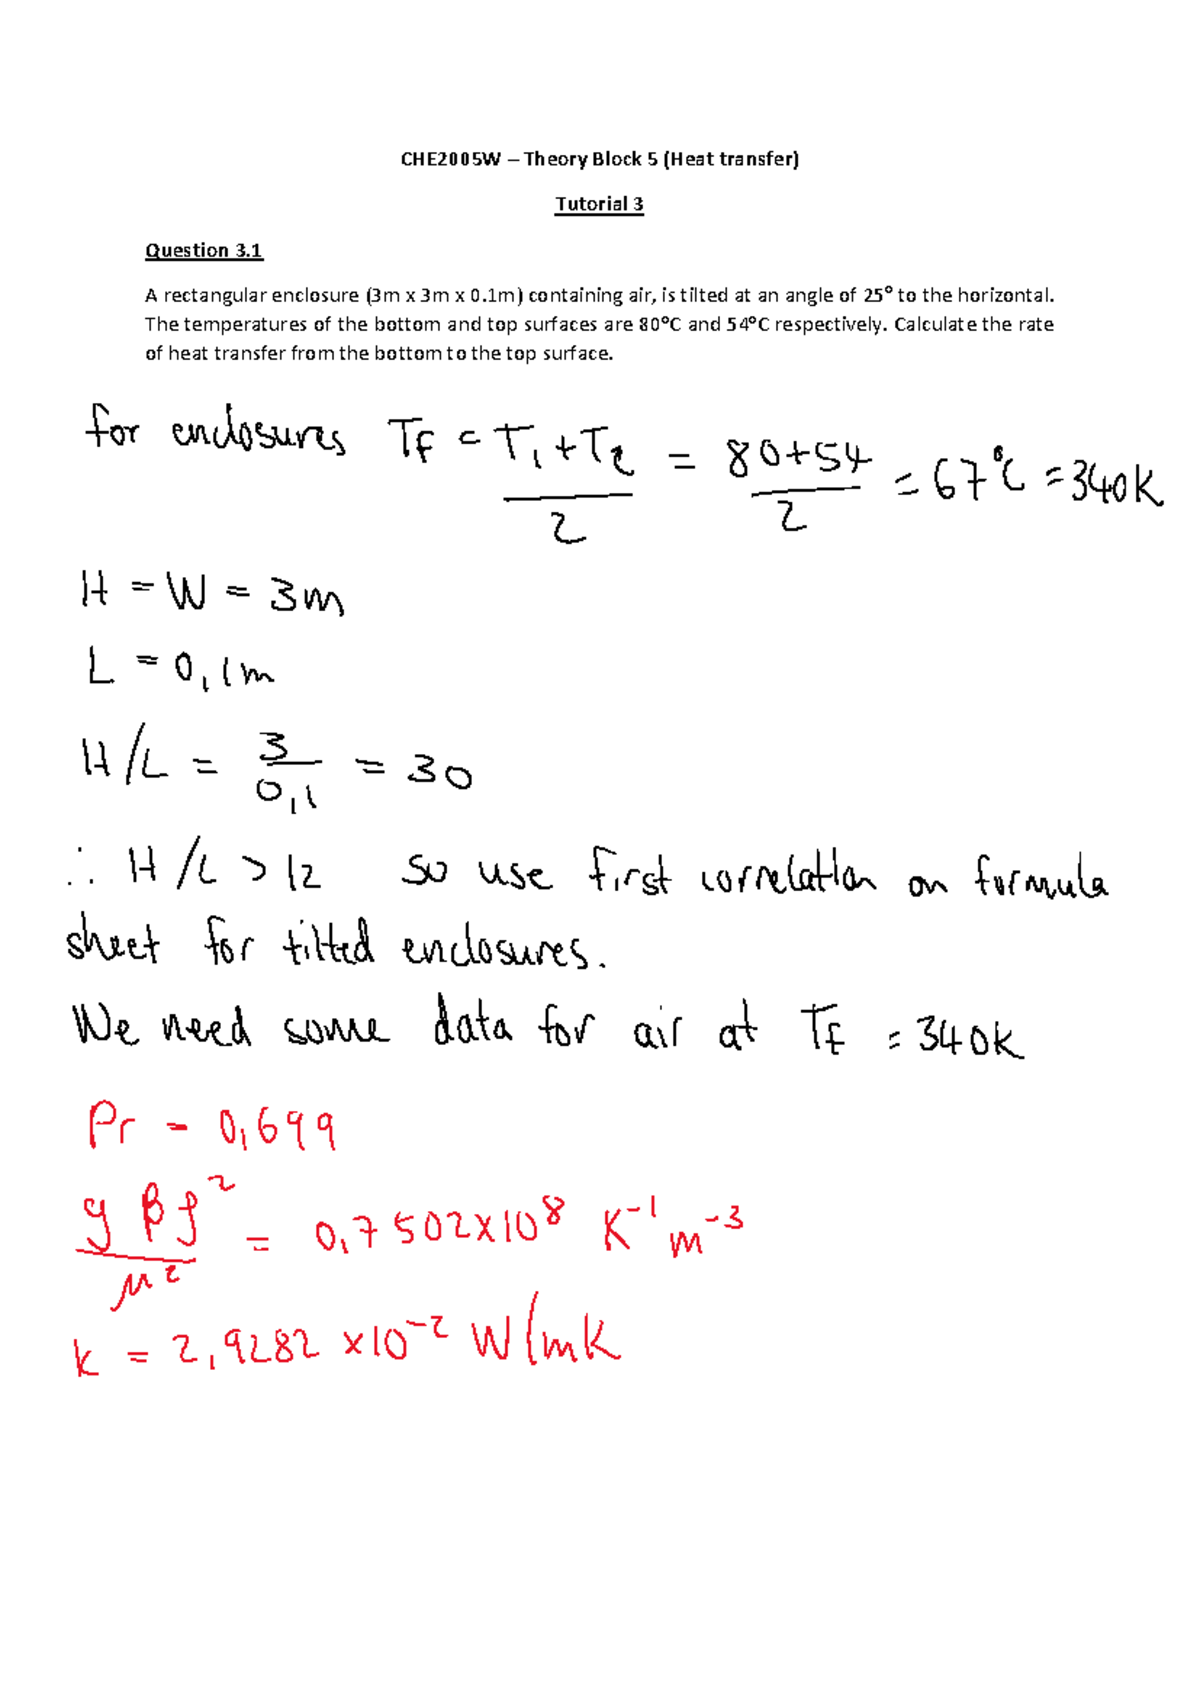 CHE2005W – Theory Block 5 (Heat transfer)
Tutorial 3
Question 3.1
A rectangular enclosure (3m x 3m x 0.1m) containing air, is tilted at an angle of 25° to the horizontal.
The temperatures of the bottom and top surfaces are 80°C and 54°C respectively. Calculate the rate
of heat transfer from the bottom to the top surface.
for enclosures TF = (T1 + T2)/2 = (80+54)/2 = 67°C = 340K
H = W = 3m
L = 0,1m
H/L = 3/0,1 = 30
∴ H/L > 12 so use first correlation on formula
sheet for tilted enclosures.
We need some data for air at TF = 340K
Pr = 0,699
gβρ²/μ² = 0,7502×10⁸ K⁻¹m⁻³
k = 2,9282 ×10⁻² W/mK